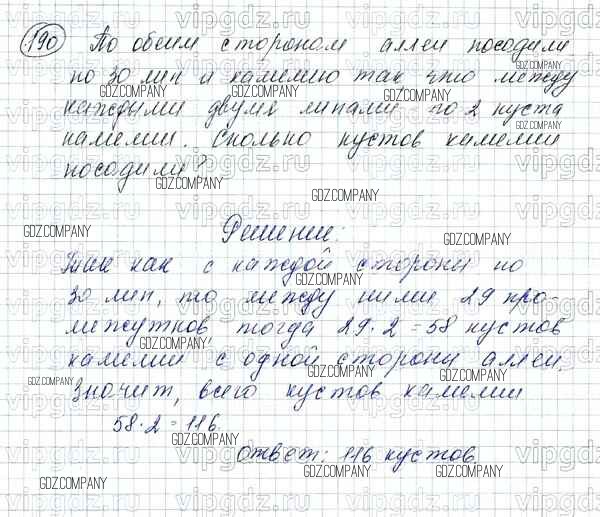 190 По обеим сторонам аллеи посадили
по 30 лип и камелию так что между
каждыми двумя липами по 2 куста
камелии. Сколько кустов камелии
посадили?
Решение:
Так как с каждой стороны по
30 лип, то между ними 29 про-
межутков, тогда 29·2=58 кустов
камелии с одной стороны аллеи.
Значит, всего кустов камелии
58·2=116.
Ответ: 116 кустов